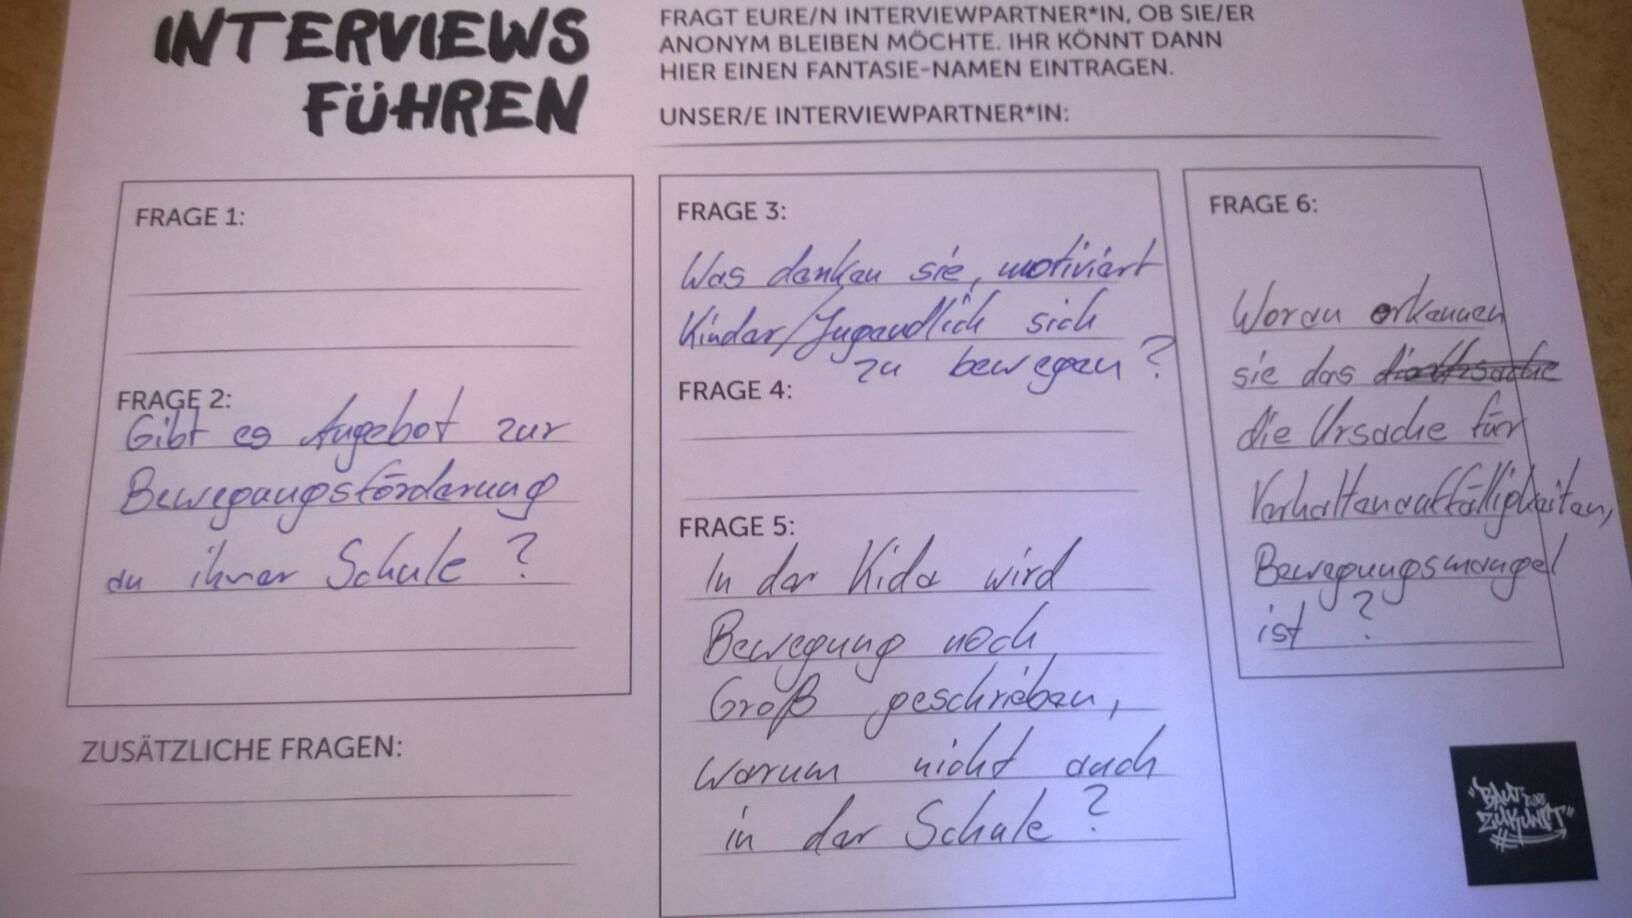 INTERVIEWS
FÜHREN
FRAGT EURE/N INTERVIEWPARTNER*IN, OB SIE/ER
ANONYM BLEIBEN MÖCHTE. IHR KÖNNT DANN
HIER EINEN FANTASIE-NAMEN EINTRAGEN.
UNSER/E INTERVIEWPARTNER*IN:
FRAGE 1:
FRAGE 2:
Gibt es Angebot zur
Bewegungsförderung
an ihrer Schule?
ZUSÄTZLICHE FRAGEN:
FRAGE 3:
Was denken sie, motiviert
Kinder/Jugendlich sich
zu bewegen?
FRAGE 4:
FRAGE 5:
In der Kida wird
Bewegung noch
Groß geschrieben,
warum nicht auch
in der Schule?
FRAGE 6:
Woran erkennen
sie das
die Ursache für
Verhaltenauffälligkeiten,
Bewegungsmangel
ist?
"BAUT EURE
ZUKUNFT"